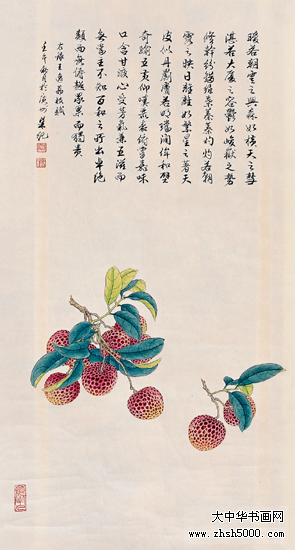 暖若朝雲之興森如橫天之彗
湛若大廈之容鬱如峻嶽之勢
修幹紛錯綠葉蓁蓁灼灼若朝
霞之映日離離如繁星之著天
皮似丹罽膚若明璫潤侔和璧
奇踰五黃仰嘆麗表俯嘗嘉味
口含甘液心受芳氣兼五滋而
無常主不知百和之所出卓絕
類而無儔超眾果而獨貴
右錄王逸荔枝賦
秋月於
大中华书画网
www.zhsh5000.com